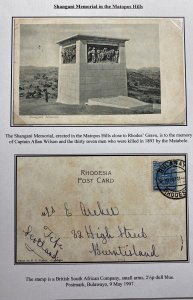 Shangani Memorial in the Matopus Hills
Shangani Memorial
The Shangani Memorial, erected in the Matopus Hills close to Rhodes' Grave, is to the memory
of Captain Allen Wilson and the thirty seven men who were killed in 1893 by the Matabele.
RHODESIA
POST CARD
82 High Street
Burntisland
Scotland
The stamp is a British South African Company, small arms, 2½p dull blue.
Postmark, Bulawayo, 9 May 1907.